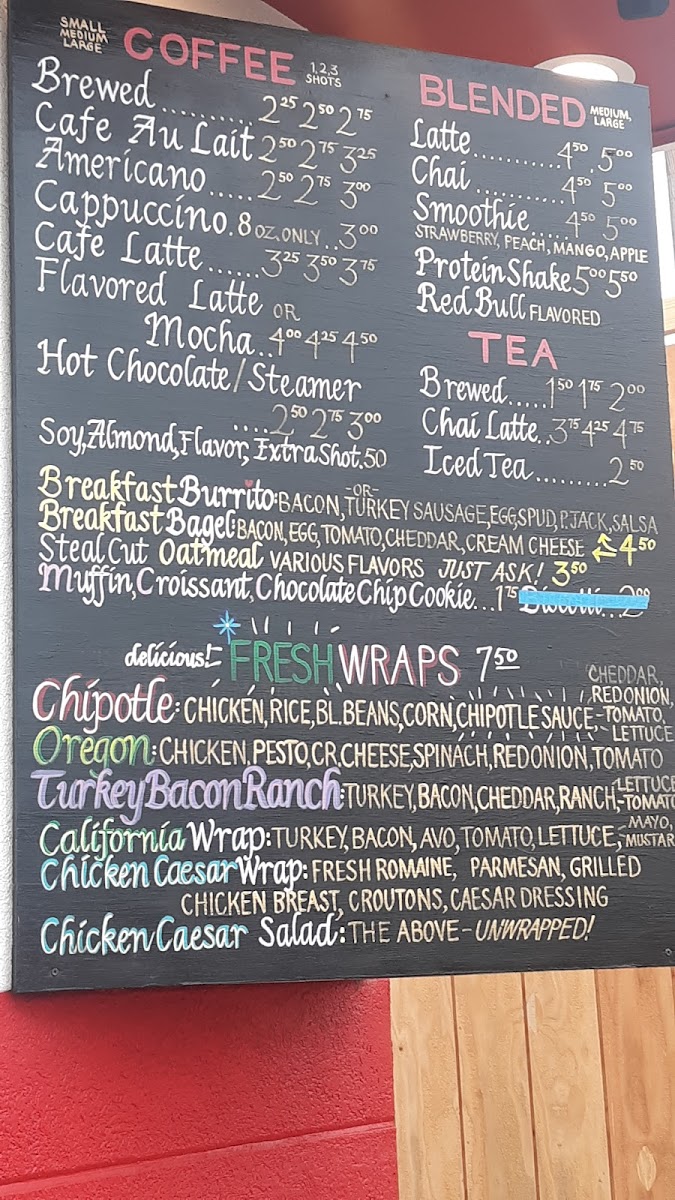 SMALL
MEDIUM
LARGE
COFFEE
1,2,3
SHOTS
Brewed..........2²⁵ 2⁵⁰ 2⁷⁵
Cafe Au Lait 2⁵⁰ 2⁷⁵ 3²⁵
Americano......2⁵⁰ 2⁷⁵ 3⁰⁰
Cappuccino. 8 OZ. ONLY..3⁰⁰
Cafe Latte.......3²⁵ 3⁵⁰ 3⁷⁵
Flavored Latte OR
Mocha..4⁰⁰ 4²⁵ 4⁵⁰
Hot Chocolate/Steamer
....2⁵⁰ 2⁷⁵ 3⁰⁰
Soy, Almond, Flavor, Extra Shot .50
BLENDED
MEDIUM,
LARGE
Latte...........4⁵⁰ 5⁰⁰
Chai ...........4⁵⁰ 5⁰⁰
Smoothie.....4⁵⁰ 5⁰⁰
STRAWBERRY, PEACH, MANGO, APPLE
Protein Shake 5⁰⁰ 5⁵⁰
Red Bull FLAVORED
TEA
Brewed.....1⁵⁰ 1⁷⁵ 2⁰⁰
Chai Latte..3⁷⁵ 4²⁵ 4⁷⁵
Iced Tea.........2⁵⁰
Breakfast Burrito: BACON, -OR- TURKEY SAUSAGE, EGG, SPUD, P. JACK, SALSA
Breakfast Bagel: BACON, EGG, TOMATO, CHEDDAR, CREAM CHEESE 4⁵⁰
Steal Cut Oatmeal VARIOUS FLAVORS JUST ASK! 3⁵⁰
Muffin, Croissant, Chocolate Chip Cookie...1⁷⁵ Biscotti...2⁰⁰
delicious! FRESH WRAPS 7⁵⁰
Chipotle: CHICKEN, RICE, BL. BEANS, CORN, CHIPOTLE SAUCE - CHEDDAR, RED ONION, TOMATO, LETTUCE
Oregon: CHICKEN, PESTO, CR. CHEESE, SPINACH, RED ONION, TOMATO
Turkey Bacon Ranch: TURKEY, BACON, CHEDDAR, RANCH, -LETTUCE -TOMATO
California Wrap: TURKEY, BACON, AVO, TOMATO, LETTUCE, -MAYO, -MUSTAR
Chicken Caesar Wrap: FRESH ROMAINE, PARMESAN, GRILLED
CHICKEN BREAST, CROUTONS, CAESAR DRESSING
Chicken Caesar Salad: THE ABOVE - UNWRAPPED!